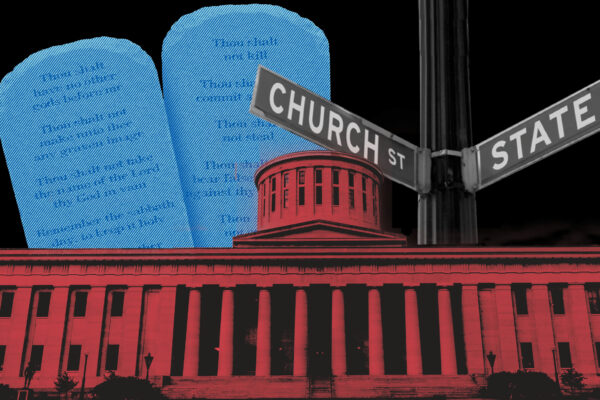 Thou shalt
have no other
gods before me
Thou shalt not
make unto thee
any graven image
Thou shalt not take
the name of the Lord
thy God in vain
Remember the sabbath
day, to keep it holy
Thou shalt
not kill
Thou
commit
Thou
not steal
Thou
bear
against
Thou
CHURCH ST
STATE